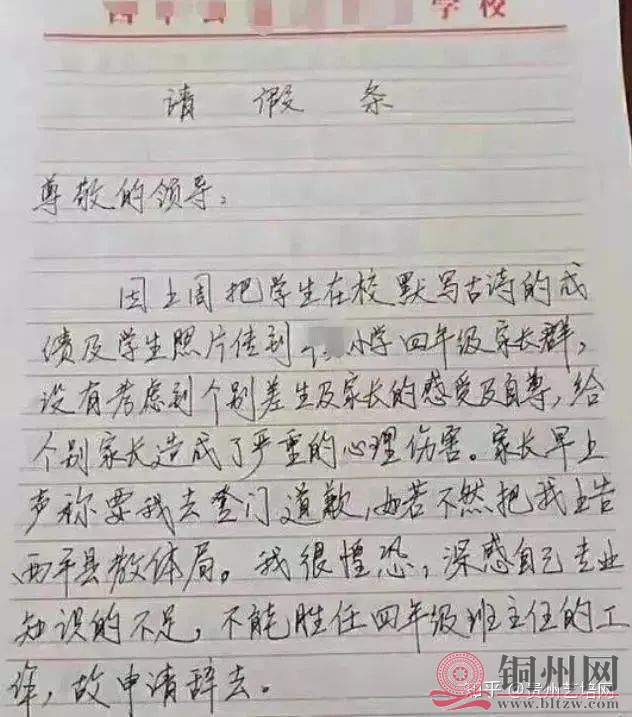 学校
请假条
尊敬的领导：
因上周把学生在校默写古诗的成
绩及学生照片传到小学四年级家长群，
没有考虑到个别差生及家长的感受及自尊，给
个别家长造成了严重的心理伤害。家长早上
声称要我去登门道歉，如若不然把我上告
西平县教体局。我很惶恐，深感自己专业
知识的不足，不能胜任四年级班主任的工
作，故申请辞去。
铜州网
知乎
www.bltzw.com